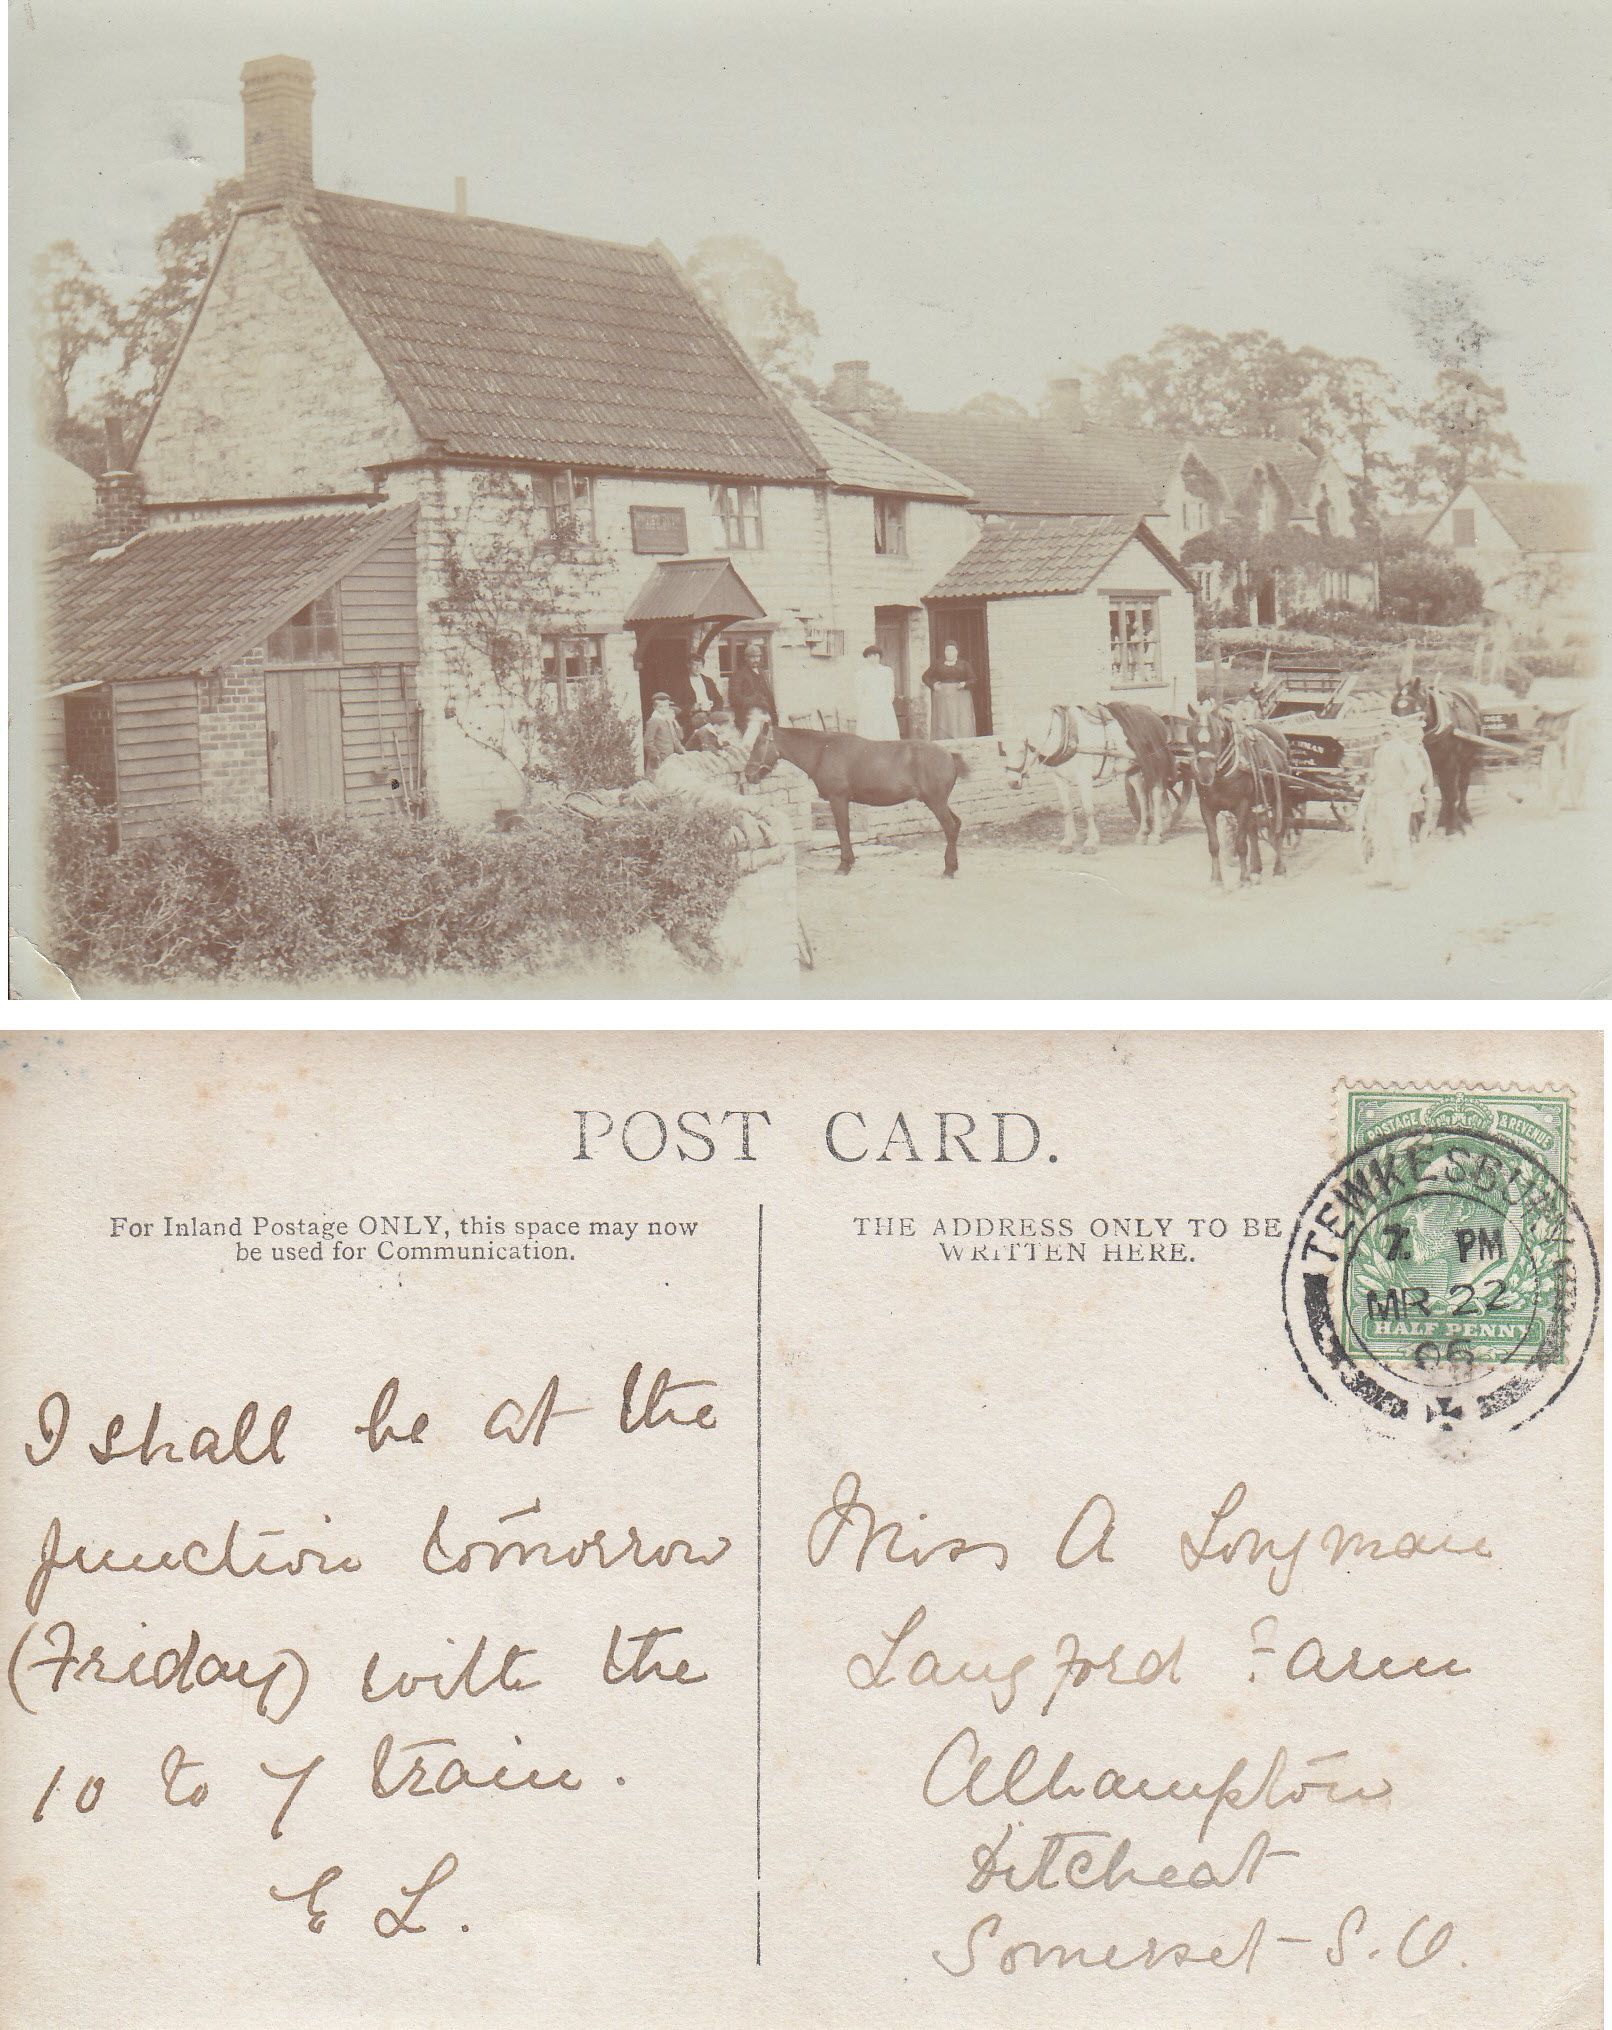 POST CARD.
For Inland Postage ONLY, this space may now
be used for Communication.
THE ADDRESS ONLY TO BE
WRITTEN HERE.
POSTAGE & REVENUE
HALF PENNY
TEWKESBURY
7. PM
MR 22
06
I shall be at the
junction tomorrow
(Friday) with the
10 to 7 train.
E L.
Miss A Longman
Langford Farm
Alhampton
Ditcheat
Somerset - S.O.